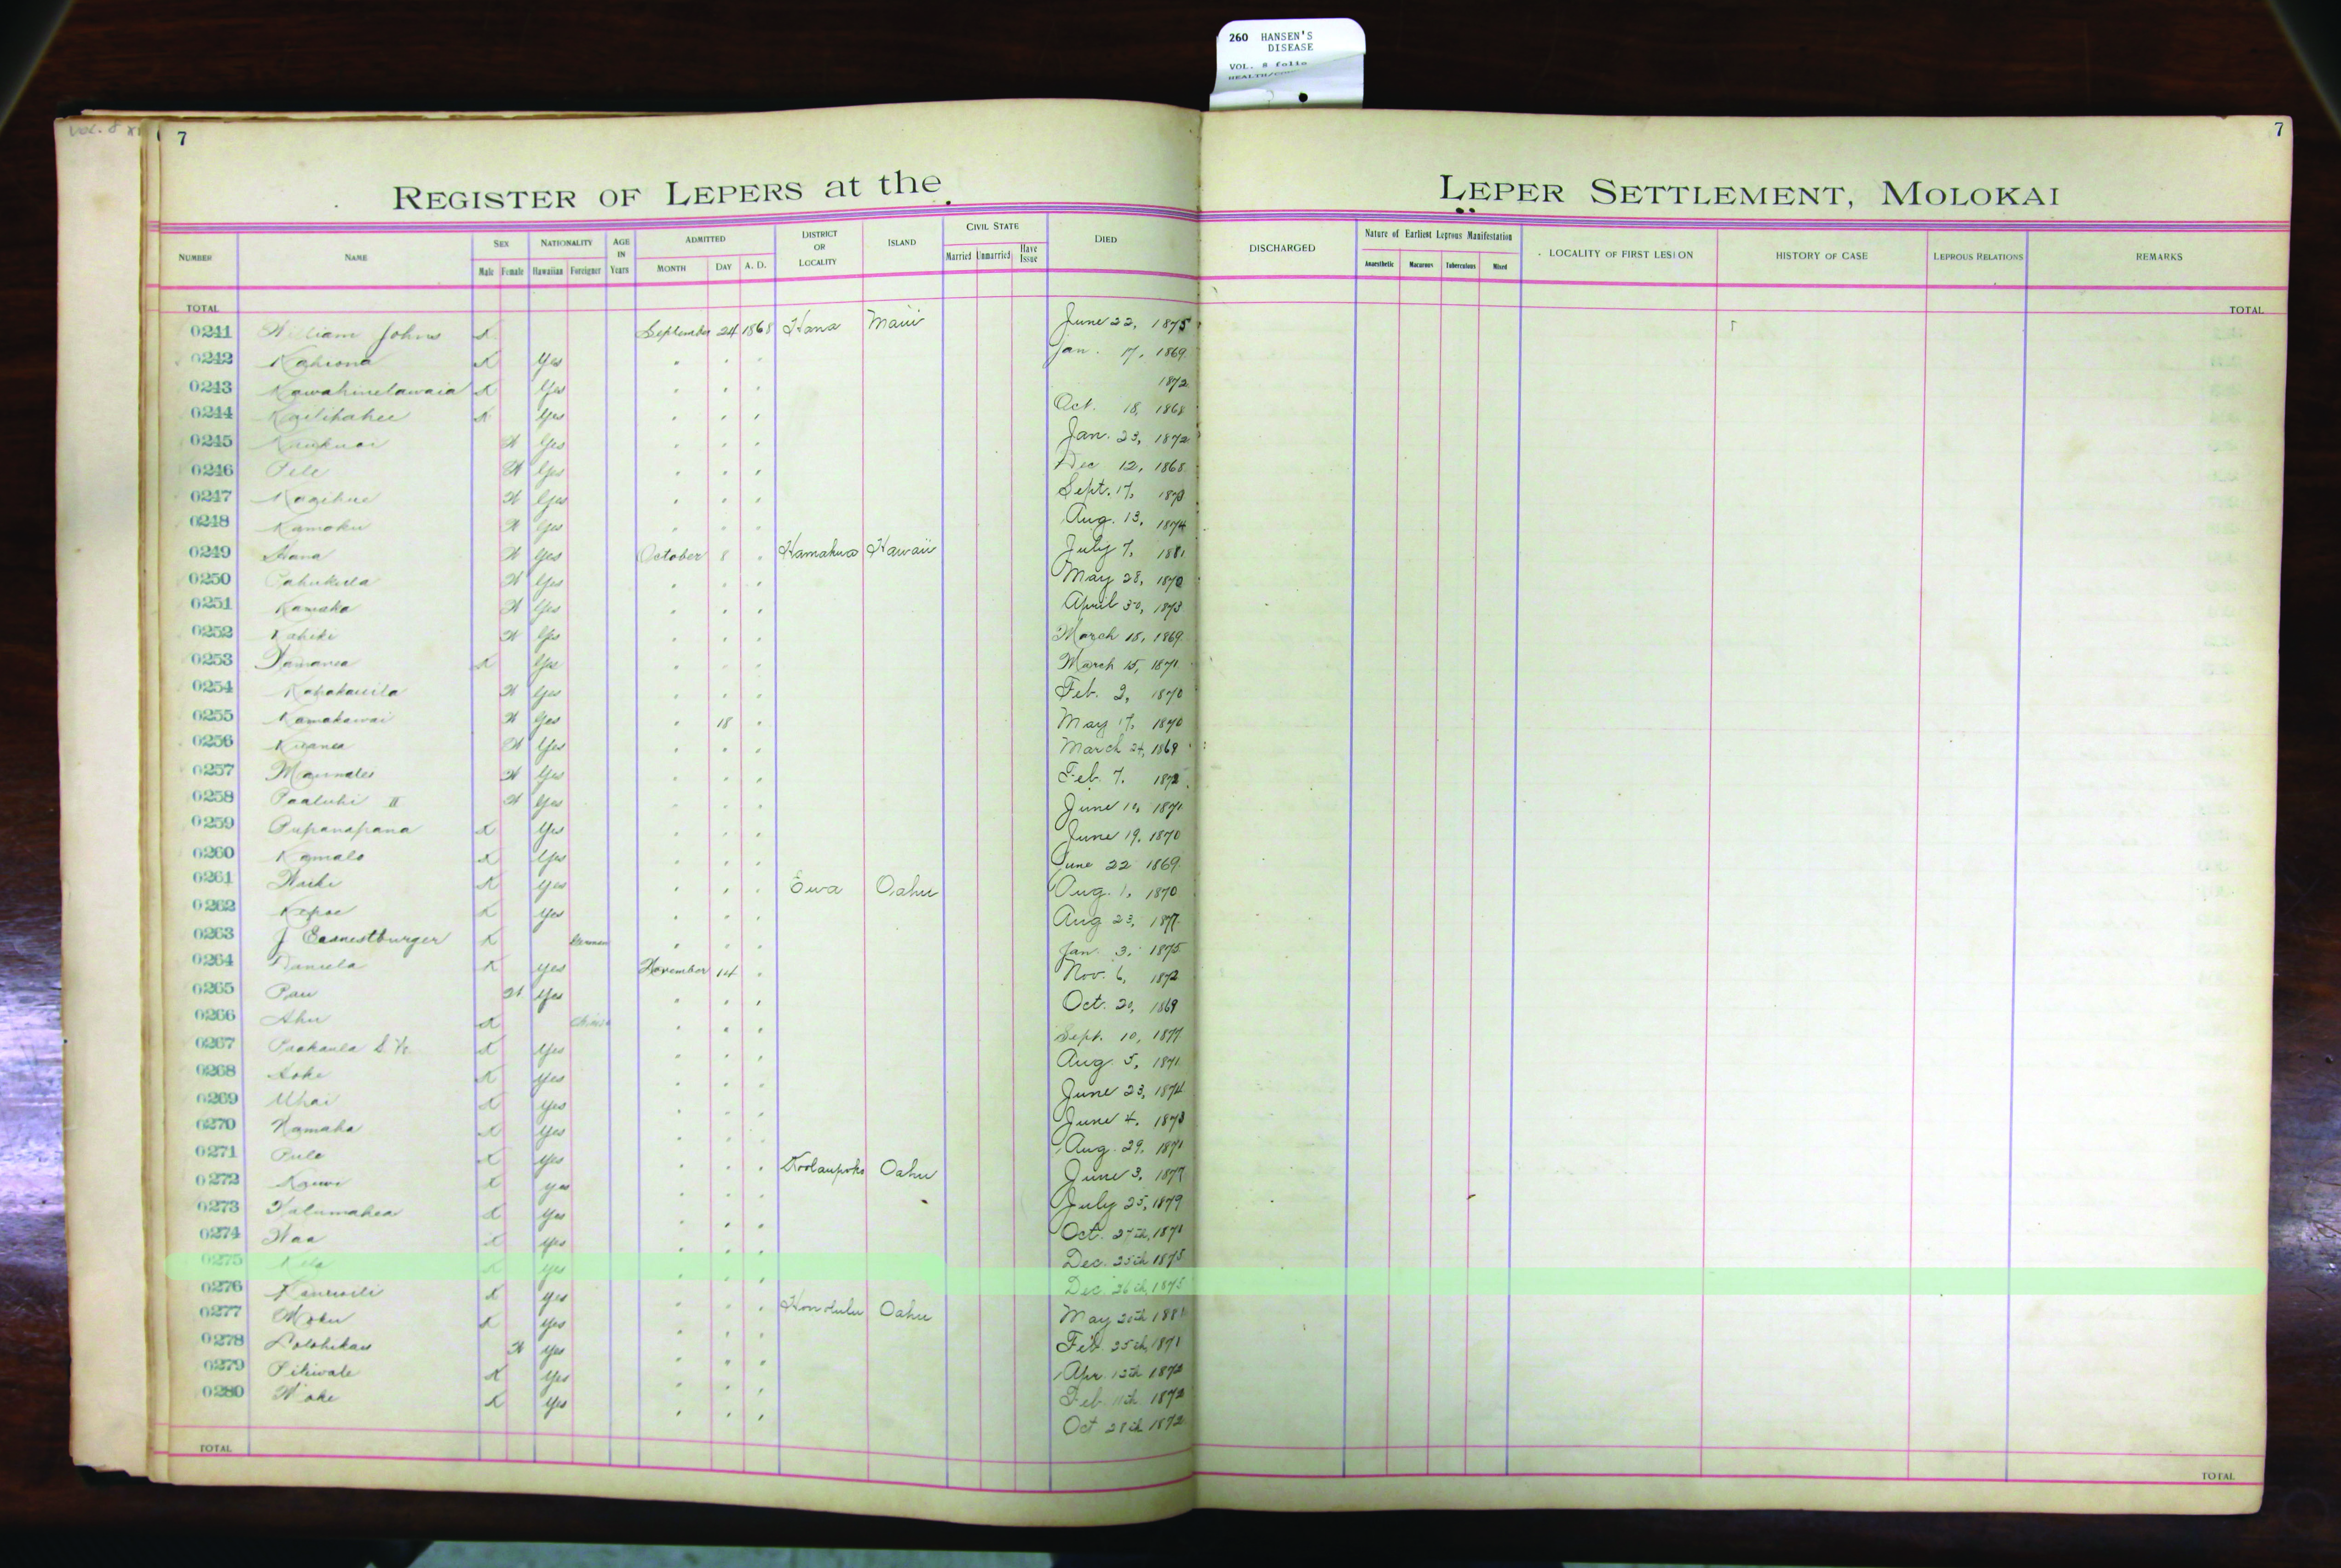 260 HANSEN'S
DISEASE
VOL. 8 folio
VOL. 8
7
7
REGISTER OF LEPERS at the LEPER SETTLEMENT, MOLOKAI
NUMBER NAME SEX NATIONALITY AGE IN Years ADMITTED DISTRICT OR LOCALITY ISLAND CIVIL STATE DIED DISCHARGED Nature of Earliest Leprous Manifestation LOCALITY OF FIRST LESION HISTORY OF CASE LEPROUS RELATIONS REMARKS
Male Female Hawaiian Foreigner MONTH DAY A. D. Married Unmarried Have Issue Anaesthetic Macurous Tuberculous Mixed
TOTAL TOTAL
0241 William Johns X September 24 1868 Hana Maui June 22, 1875
0242 Kahiona X Yes " " " Jan. 17, 1869
0243 Kawahinelawaia X Yes " " " 1872
0244 X Yes " " " Oct. 18, 1868
0245 X Yes " " " Jan. 23, 1872
0246 Pele X Yes " " " Dec 12, 1868
0247 X Yes " " " Sept. 17, 1873
0248 Kamoku X Yes " " " Aug. 13, 1874
0249 Hana X Yes October 8 " Hamakua Hawaii July 7, 1881
0250 X Yes " " " May 28, 1870
0251 Kamaka X Yes " " " April 30, 1873
0252 Kahiki X Yes " " " March 18, 1869
0253 X Yes " " " March 15, 1871
0254 Kapakauila X Yes " " " Feb. 2, 1870
0255 Kamakawai X Yes " 18 " May 17, 1870
0256 X Yes " " " March 24, 1869
0257 X Yes " " " Feb. 7, 1872
0258 Paaluhi II X Yes " " " June 10, 1871
0259 Pupanapana X Yes " " " June 19, 1870
0260 Kamalo X Yes " " " June 22 1869
0261 X Yes " " " Ewa Oahu Aug. 1, 1870
0262 Kepae X Yes " " " Aug 23, 1877
0263 J Earnestburger X German " " " Jan. 3, 1875
0264 Daniela X Yes November 14 " Nov. 6, 1872
0265 Pau X Yes " " " Oct. 20, 1869
0266 Ahu X Chinese " " " Sept. 10, 1877
0267 X Yes " " " Aug. 5, 1871
0268 X Yes " " " June 23, 1874
0269 Uhai X Yes " " " June 4, 1873
0270 Kamaka X Yes " " " Aug. 29, 1871
0271 Pule X Yes " " " Koolaupoko Oahu June 3, 1877
0272 X Yes " " " July 25, 1879
0273 Kalumahea X Yes " " " Oct. 27th, 1871
0274 X Yes " " " Dec. 25th 1875
0275 Kela X Yes " " " Dec 26th, 1875
0276 X Yes " " " Honolulu Oahu May 20th
0277 Moku X Yes " " " Feb. 25th, 1871
0278 X Yes " " " Apr. 13th 1872
0279 Piliwale X Yes " " " Feb 11th 1872
0280 X Yes " " " Oct 28th 1872
TOTAL TOTAL